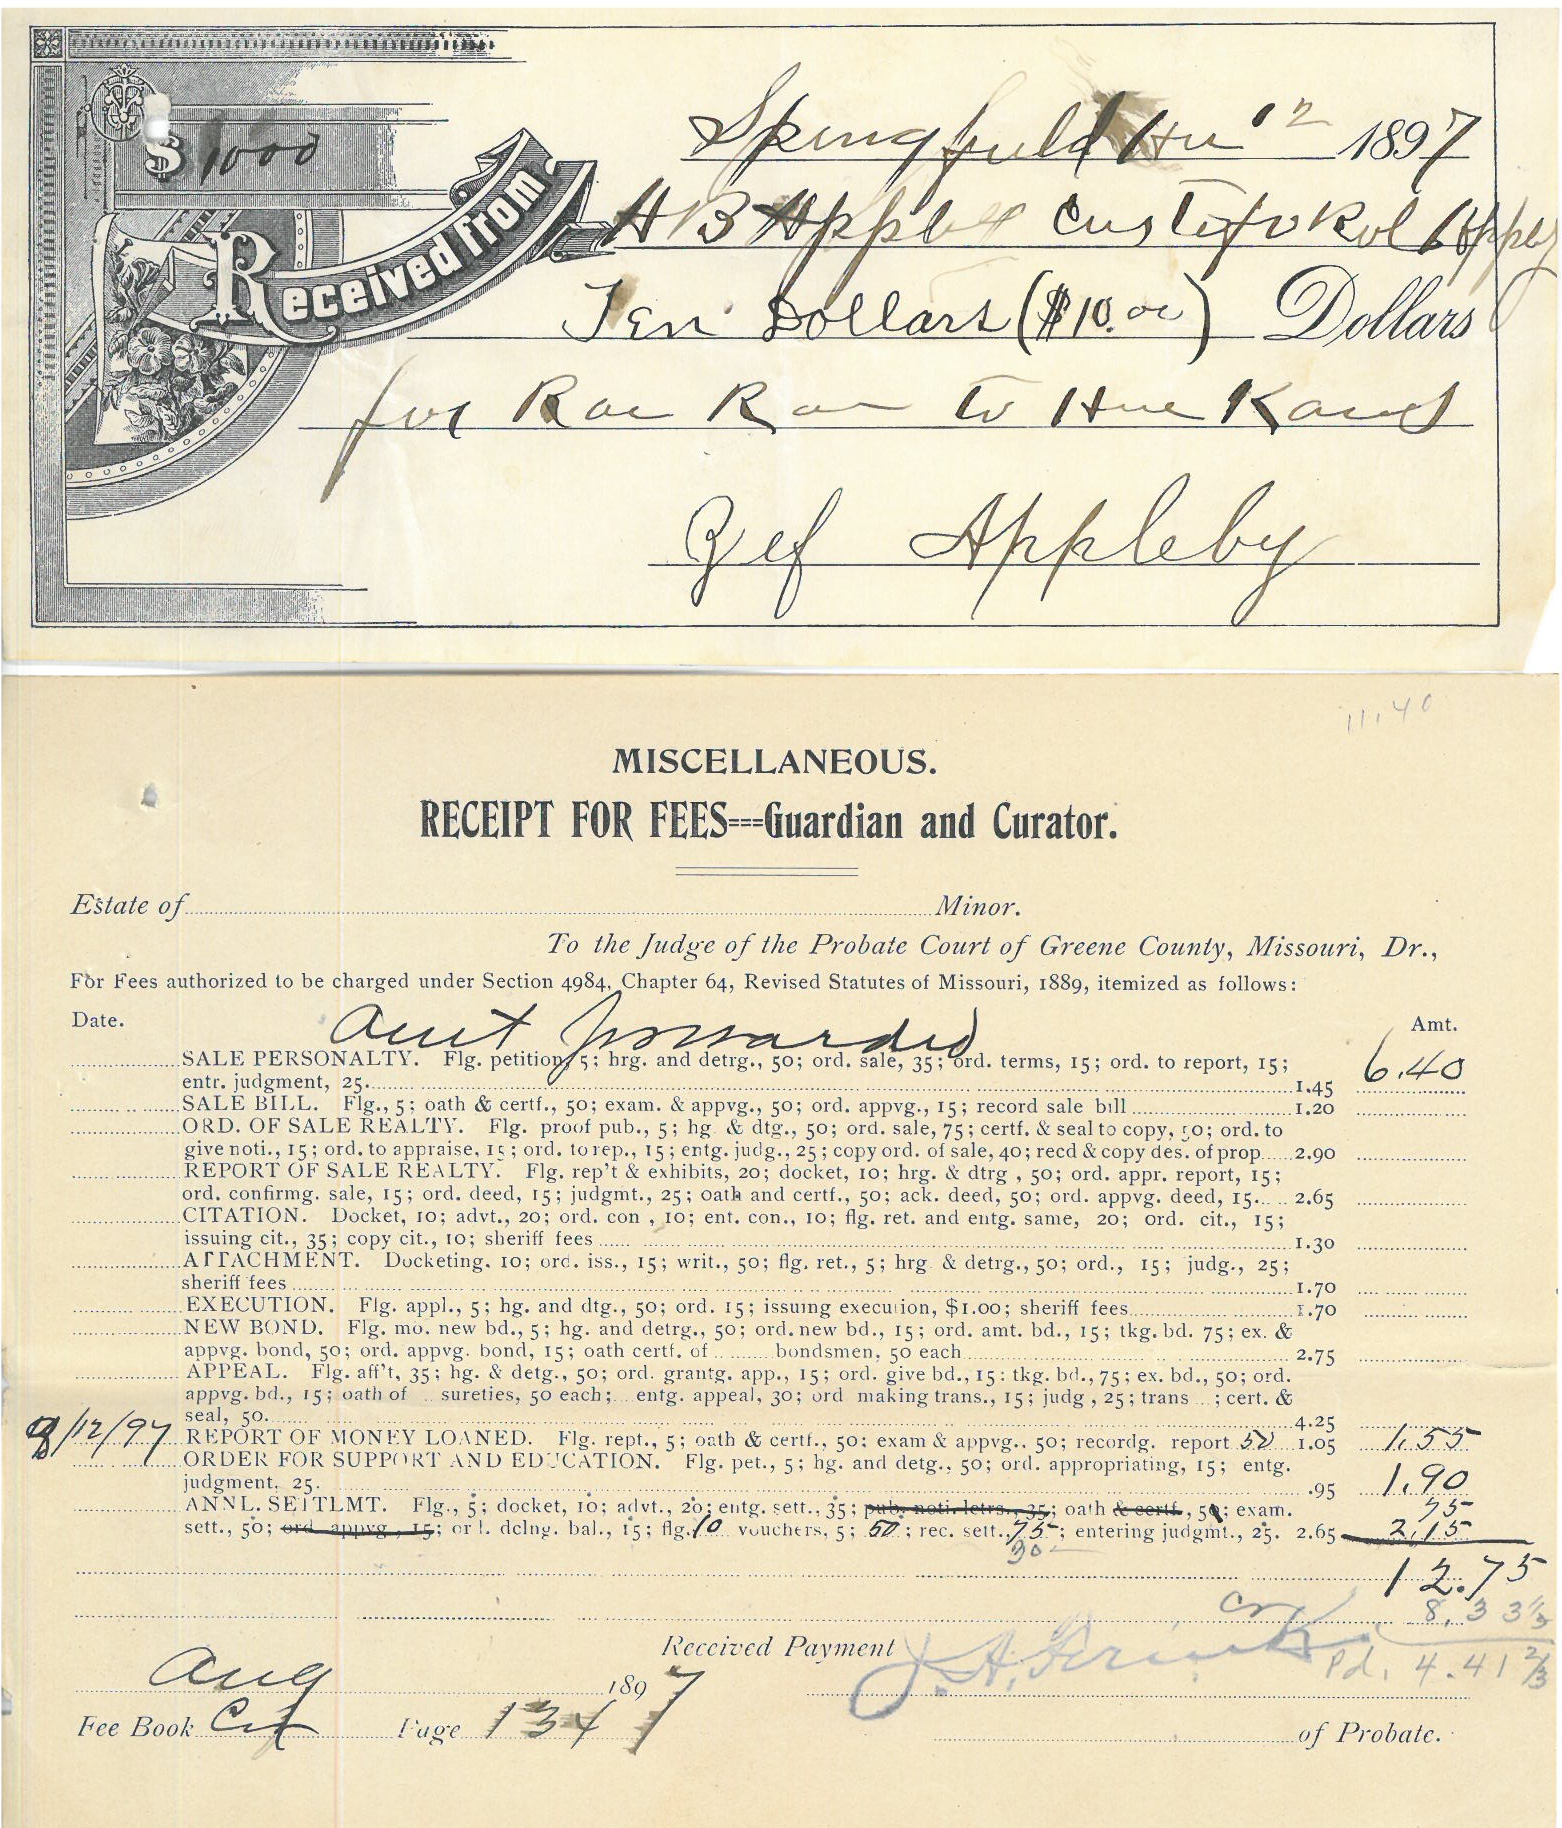 Springfield 12 1897
$ 1000
Received from A B Appleb Cust of Rol Appleby
Ten Dollars ($10.00) Dollars
for to Kans
Zef Appleby
11.40
MISCELLANEOUS.
RECEIPT FOR FEES===Guardian and Curator.
Estate of Minor.
To the Judge of the Probate Court of Greene County, Missouri, Dr.,
For Fees authorized to be charged under Section 4984, Chapter 64, Revised Statutes of Missouri, 1889, itemized as follows:
Date. Amt forwarded Amt.
SALE PERSONALTY. Flg. petition, 5; hrg. and detrg., 50; ord. sale, 35; ord. terms, 15; ord. to report, 15; 6.40
entr. judgment, 25. 1.45
SALE BILL. Flg., 5; oath & certf., 50; exam. & appvg., 50; ord. appvg., 15; record sale bill 1.20
ORD. OF SALE REALTY. Flg. proof pub., 5; hg & dtg., 50; ord. sale, 75; certf. & seal to copy, 50; ord. to
give noti., 15; ord. to appraise, 15; ord. to rep., 15; entg. judg., 25; copy ord. of sale, 40; rec'd & copy des. of prop 2.90
REPORT OF SALE REALTY. Flg. rep't & exhibits, 20; docket, 10; hrg. & dtrg , 50; ord. appr. report, 15;
ord. confirmg. sale, 15; ord. deed, 15; judgmt., 25; oath and certf., 50; ack. deed, 50; ord. appvg. deed, 15. 2.65
CITATION. Docket, 10; advt., 20; ord. con , 10; ent. con., 10; flg. ret. and entg. same, 20; ord. cit., 15;
issuing cit., 35; copy cit., 10; sheriff fees 1.30
ATTACHMENT. Docketing, 10; ord. iss., 15; writ., 50; flg. ret., 5; hrg & detrg., 50; ord., 15; judg., 25;
sheriff fees 1.70
EXECUTION. Flg. appl., 5; hg. and dtg., 50; ord. 15; issuing execution, $1.00; sheriff fees 1.70
NEW BOND. Flg. mo. new bd., 5; hg. and detrg., 50; ord. new bd., 15; ord. amt. bd., 15; tkg. bd. 75; ex. &
appvg. bond, 50; ord. appvg. bond, 15; oath certf. of bondsmen, 50 each 2.75
APPEAL. Flg. aff't, 35; hg. & detg., 50; ord. grantg. app., 15; ord. give bd., 15; tkg. bd., 75; ex. bd., 50; ord.
appvg. bd., 15; oath of sureties, 50 each; entg. appeal, 30; ord making trans., 15; judg , 25; trans ; cert. &
seal, 50. 4.25
8/12/97 REPORT OF MONEY LOANED. Flg. rept., 5; oath & certf., 50; exam & appvg., 50; recordg. report 50 1.05 1.55
ORDER FOR SUPPORT AND EDUCATION. Flg. pet., 5; hg. and detg., 50; ord. appropriating, 15; entg.
judgment, 25. .95 1.90
ANNL. SETTLMT. Flg., 5; docket, 10; advt., 20; entg. sett., 35; pub. noti. letrs., 35; oath & certf., 50; exam. 75
sett., 50; ord. appvg., 15; or l. dclng. bal., 15; flg. 10 vouchers, 5; 50; rec. sett., 75; entering judgmt., 25. 2.65 2.15
30
12.75
cr 8.33 1/3
Received Payment Pd. 4.41 2/3
Aug 1897
Fee Book Page 134
of Probate.